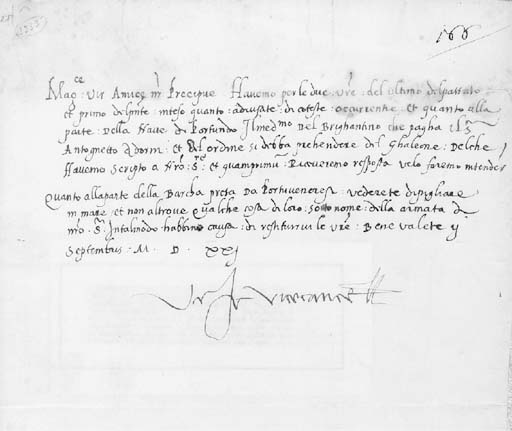 166
Mag.ce Vir Amice nr Precipue Havemo per le due vre : del ultimo del passato
et primo del pnte inteso quanto : advisate : di coteste occurrentie et quanto alla
parte : Della Nave di Porfundo Il medmo Del Brighantino che pagha il S.
Antognetto Adorni : et del ordine si debba prehendere del Ghaleone : Del che
Havemo Scripto a Nro : S.re et quamprimum Riceveremo resposta velo faremo intender
Quanto alla parte della Barcha presa Da Porthueneresi vederete di pigliare
in mare et non altrove qualche cosa di loro : sotto nome : della armata di
nro . S. In tal modo habbino causa : di restituirvi le vre : Bene valete ij
Septembris M . D . XXI